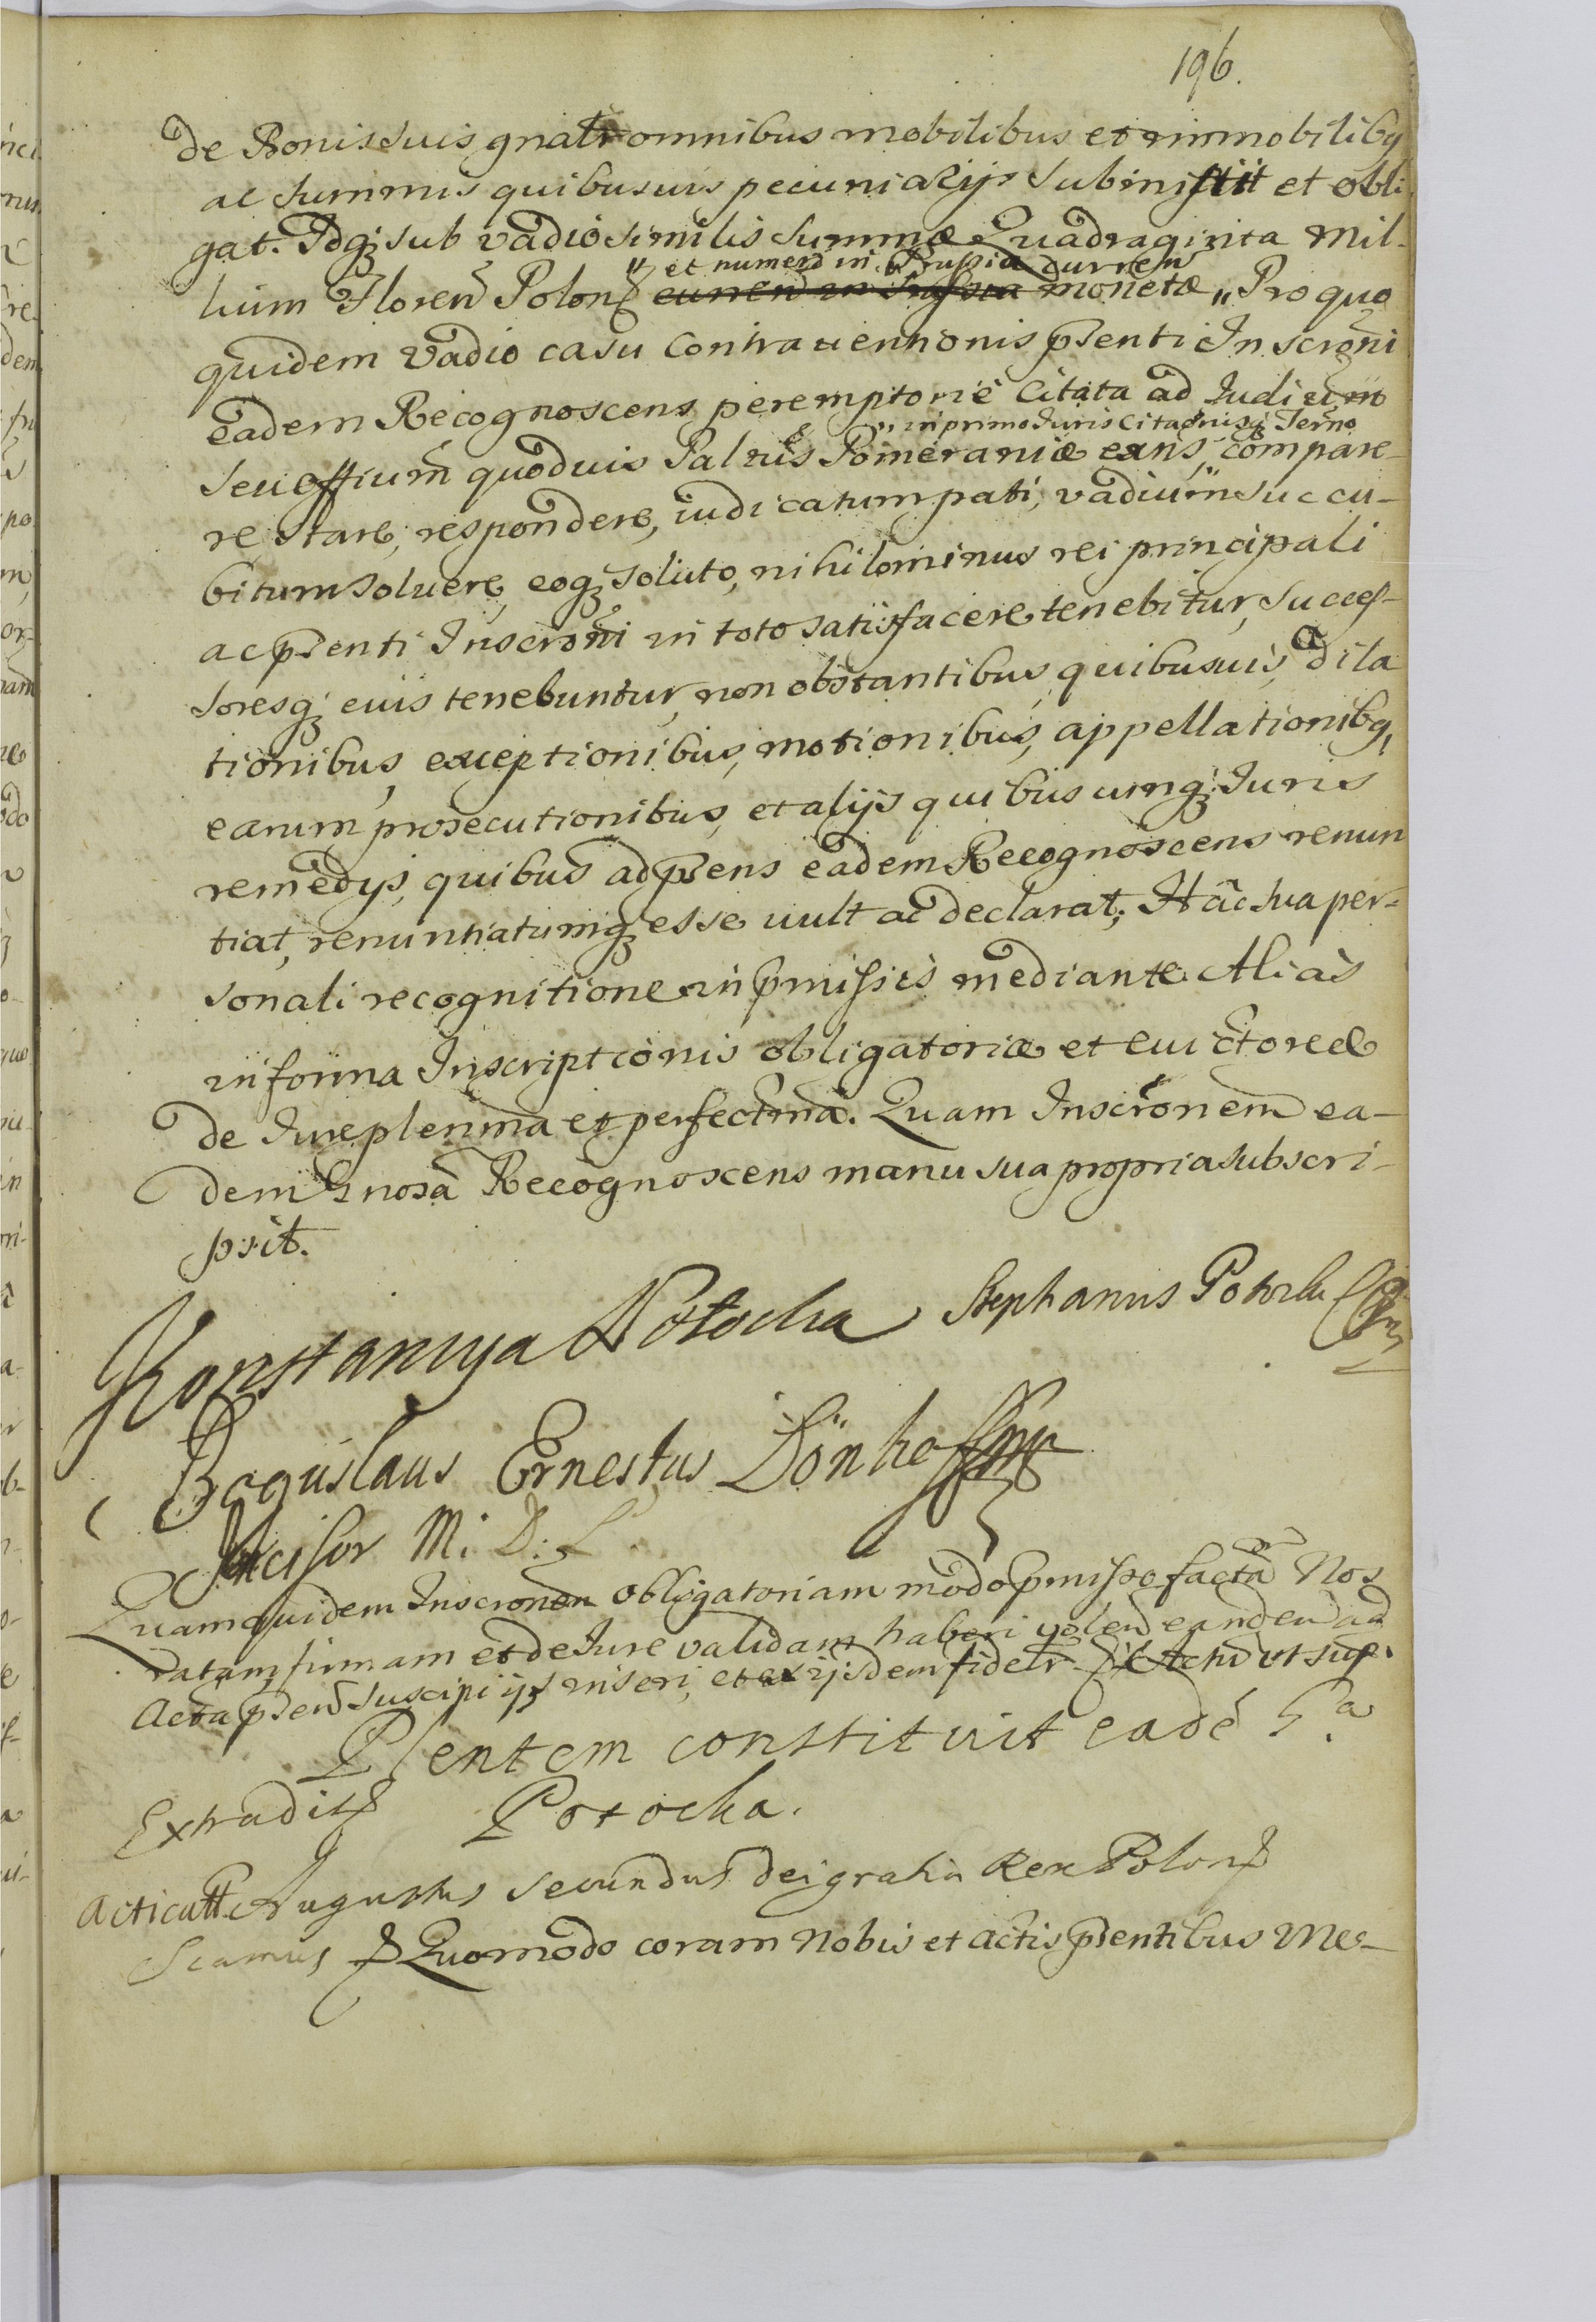 196.
de Bonis suis gnalr omnibus mobilibus et immobilibq
ac summis quibusuis pecuniarijs subinscit et obli
gat. Idq sub vadio similis summæ Quadraginta Mil-
" et numerd in Prussia curren
lium Floren Polon curren in Prussia monetæ „ Pro quo
quidem vadio casu contrauentionis psenti Inscroni
eadem Recognoscens peremptorie citata ad Iudicium
„ in primo Iuris citaonisq Termo
seu offium quoduis Paltus Pomeraniæ exns, compare-
re, stare, respondere, iudicatum pati, vadium succu-
bitum soluere, eoq soluto, nihilominus rei principali
ac psenti Inscroni in toto satisfacere tenebitur, succes-
soresq eius tenebuntur, non obstantibus quibusuis, dila
tionibus, exceptionibus, motionibus, appellationibq,
earum prosecutionibus, et alijs quibuscunq Iuris
remedys, quibus ad psens eadem Recognoscens renun
tiat, renuntiatumq esse vult ac declarat, Hac sua per-
sonali recognitione in pmissis mediante. Alias
in forma Inscriptionis obligatoriæ et euictoreæ
de Iure plenma et perfectma. Quam Inscronem ea-
dem Gnosa Recognoscens manu sua propria subscri-
psit.
Konstancya Potocka Stephanus Potocki
Boguslaus Ernestus Dönhoff mp
Incisor M. D. L
Quam quidem Inscronem obligatoriam modo pmisso facta Nos
ratam, firmam et de Iure validam haberi volen eanden ad
Acta psen suscipi ijs inseri, et ex ijsdem fideltr Actu ut supr.
Psentem constituit eade G.a
Extradit Potocka.
Acticatt Augustus Secundus dei gratia Rex Polon
Scamus Quomodo coram Nobis et actis psentibus Me-